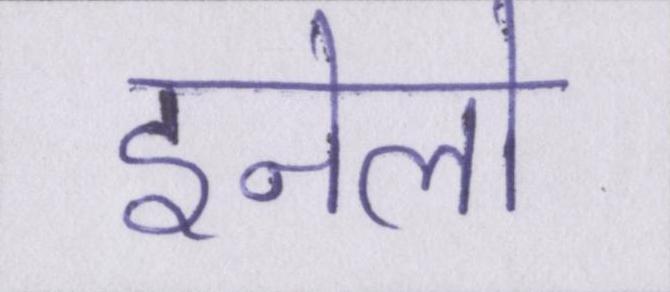 इनेलो